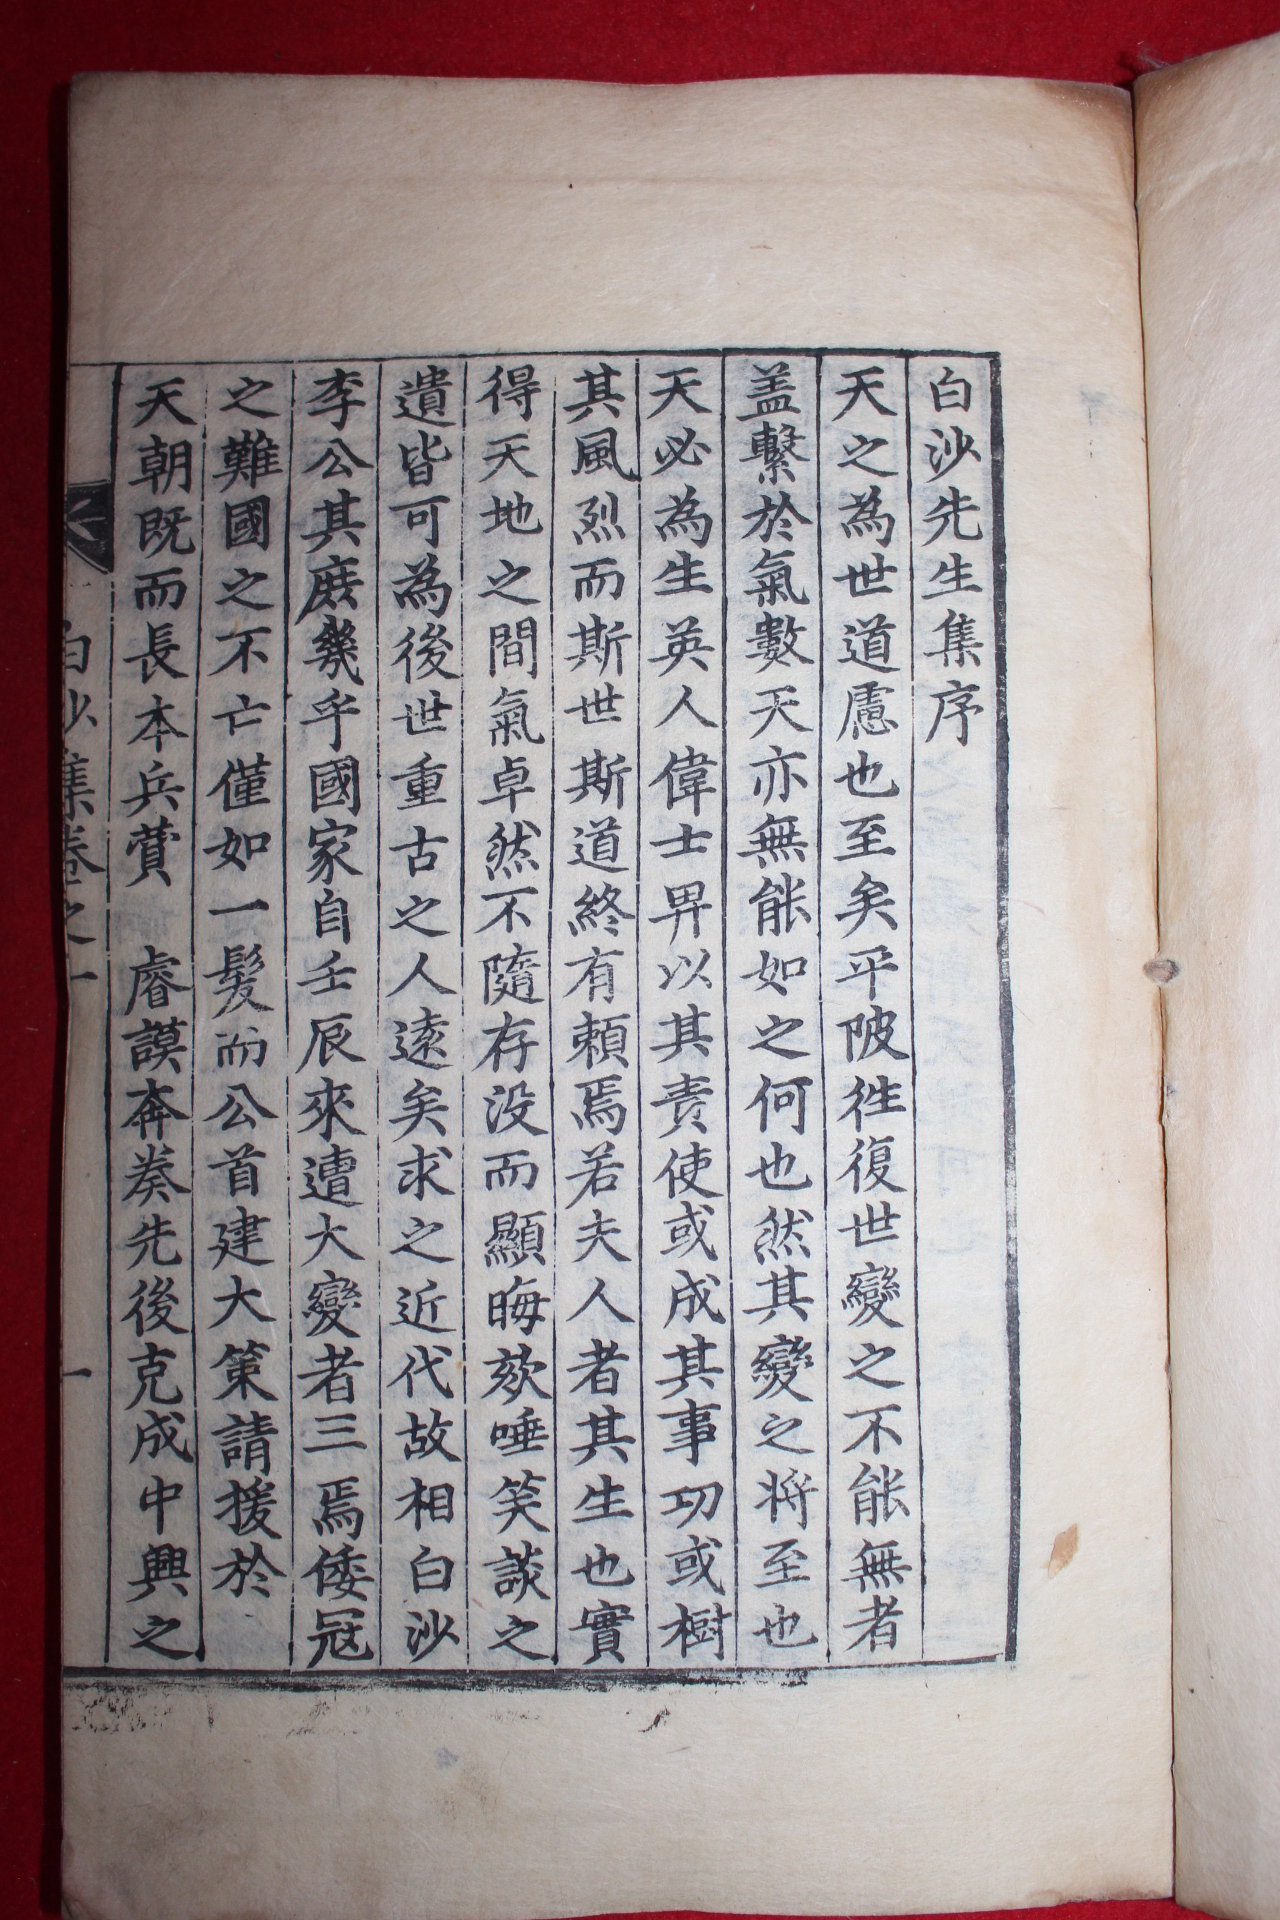 白沙先生集序
天之為世道慮也至矣平陂徃復世變之不能無者
盖繫於氣數天亦無能如之何也然其變之將至也
天必為生英人偉士畀以其責使或成其事功或樹
其風烈而斯世斯道終有頼焉若夫人者其生也實
得天地之間氣卓然不隨存没而顯晦欬唾笑談之
遺皆可為後世重古之人逺矣求之近代故相白沙
李公其庶幾乎國家自壬辰來遭大變者三焉倭冦
之難國之不亡僅如一髮而公首建大策請援於
天朝既而長本兵賛 睿謨奔奏先後克成中興之
白沙集卷之一
一